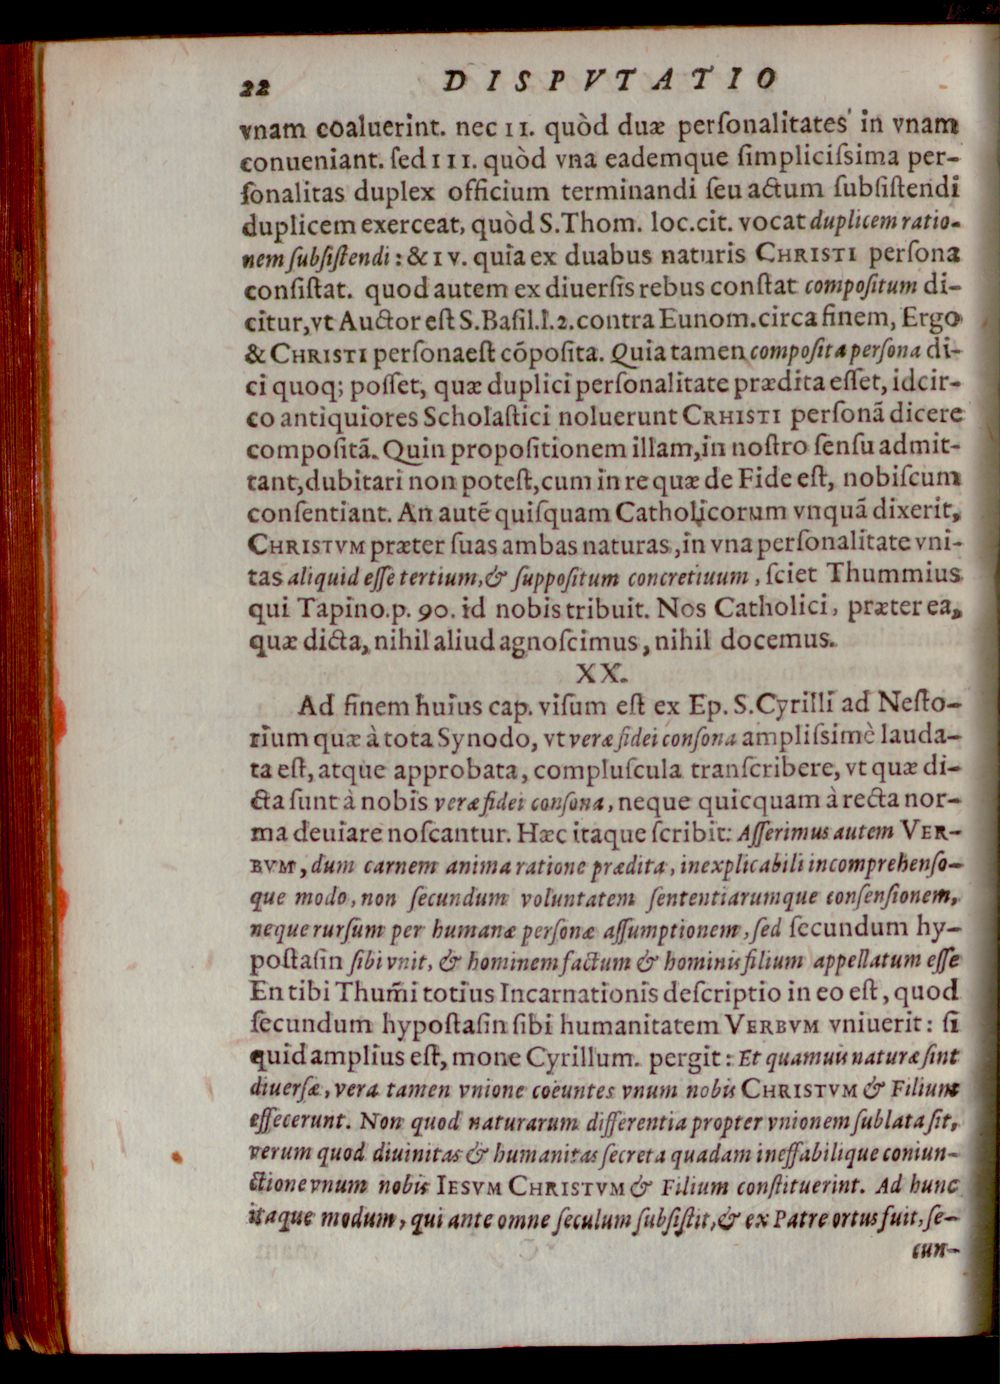 22 DISPVTATIO
vnam coaluerint. nec II. quòd duæ personalitates in vnam
conueniant. sed III. quòd vna eademque simplicissima per-
sonalitas duplex officium terminandi seu actum subsistendi
duplicem exerceat, quòd S. Thom. loc. cit. vocat duplicem ratio-
nem subsistendi: & IV. quia ex duabus naturis CHRISTI persona
consistat. quod autem ex diuersis rebus constat compositum di-
citur, vt Auctor est S. Basil. l. 2. contra Eunom. circa finem, Ergo
& CHRISTI persona est cõposita. Quia tamen composita persona di-
ci quoq; posset, quæ duplici personalitate prædita esset, idcir-
co antiquiores Scholastici noluerunt CRHISTI personã dicere
compositã. Quin propositionem illam, in nostro sensu admit-
tant, dubitari non potest, cum in re quæ de Fide est, nobiscum
consentiant. An autē quisquam Catholicorum vnquã dixerit,
CHRISTVM præter suas ambas naturas, in vna personalitate vni-
tas aliquid esse tertium, & suppositum concretiuum, sciet Thummius
qui Tapino. p. 90. id nobis tribuit. Nos Catholici, præter ea,
quæ dicta, nihil aliud agnoscimus, nihil docemus.
XX.
Ad finem huius cap. visum est ex Ep. S. Cyrilli ad Nesto-
rium quæ à tota Synodo, vt veræ fidei consona amplissimè lauda-
ta est, atque approbata, compluscula transcribere, vt quæ di-
cta sunt à nobis veræ fidei consona, neque quicquam à recta nor-
ma deuiare noscantur. Hæc itaque scribit: Asserimus autem VER-
BVM, dum carnem anima ratione prædita, inexplicabili incomprehenso-
que modo, non secundum voluntatem sententiarumque consensionem,
neque rursum per humanæ personæ assumptionem, sed secundum hy-
postasin sibi vnit, & hominem factum & hominis filium appellatum esse
En tibi Thum̃i totius Incarnationis descriptio in eo est, quod
secundum hypostasin sibi humanitatem VERBVM vniuerit: si
quid amplius est, mone Cyrillum. pergit: Et quamuis naturæ sint
diuersæ, vera tamen vnione coëuntes vnum nobis CHRISTVM & Filium
effecerunt. Non quod naturarum differentia propter vnionem sublata sit,
verum quod diuinitas & humanitas secreta quadam ineffabilique coniun-
ctione vnum nobis IESVM CHRISTVM & Filium constituerint. Ad hunc
itaque modum, qui ante omne seculum subsistit, & ex Patre ortus fuit, se-
cun-